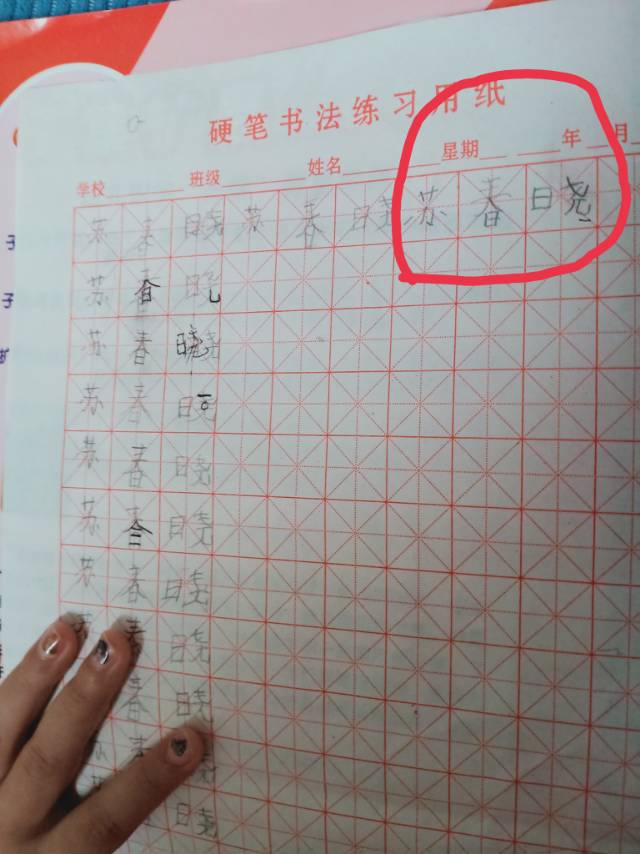 硬笔书法练习用纸
学校 班级 姓名 星期 年 月
苏 春 晓 苏 春 晓 苏 春 晓
苏 春
苏 春 晓
苏 春 晓
苏 春 晓
苏 春 晓
苏 春 晓
春 晓
春 晓
晓